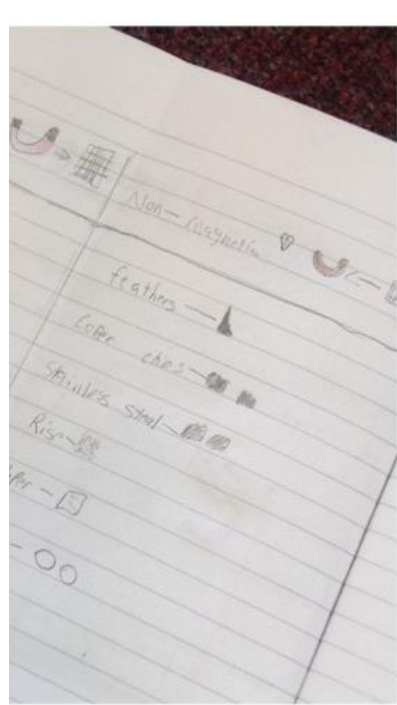 Non-Magnetic
feathers
Coper chips
Stainless Steel
Rise